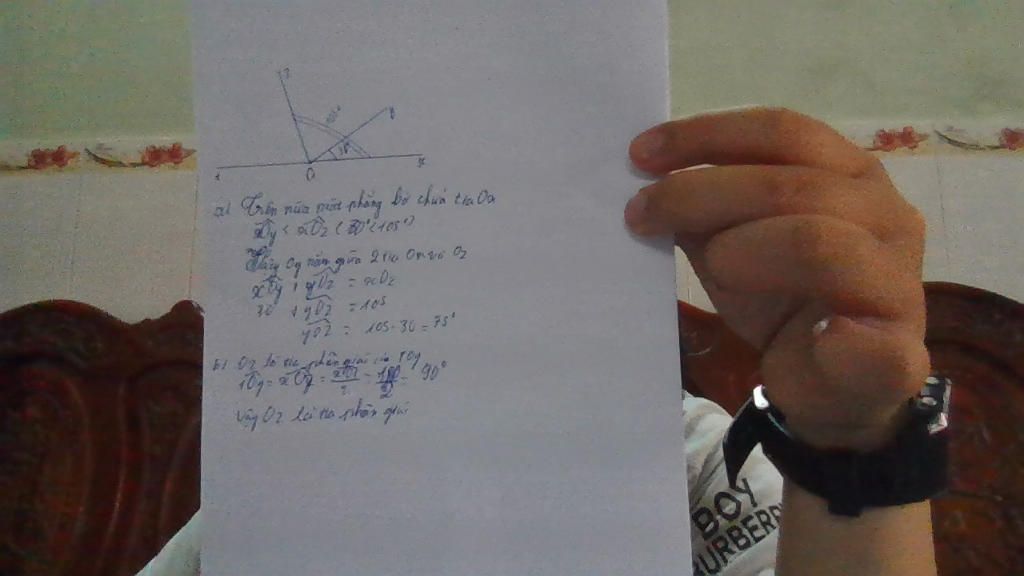 z
105°
y
30°
t
O
x
a) Trên nửa mặt phẳng bờ chứa tia Ox
xÔy < xÔz (30° < 105°)
Oy nằm giữa 2 tia Ox và Oz
xÔy + yÔz = xOz
30 + yÔz = 105
yÔz = 105 - 30 = 75°
b) Oz là tia phân giác của tOy
tÔy = xÔy = = 180 = 90°
2 2
Vậy Oz là tia phân giác
BOY
BURBERRY